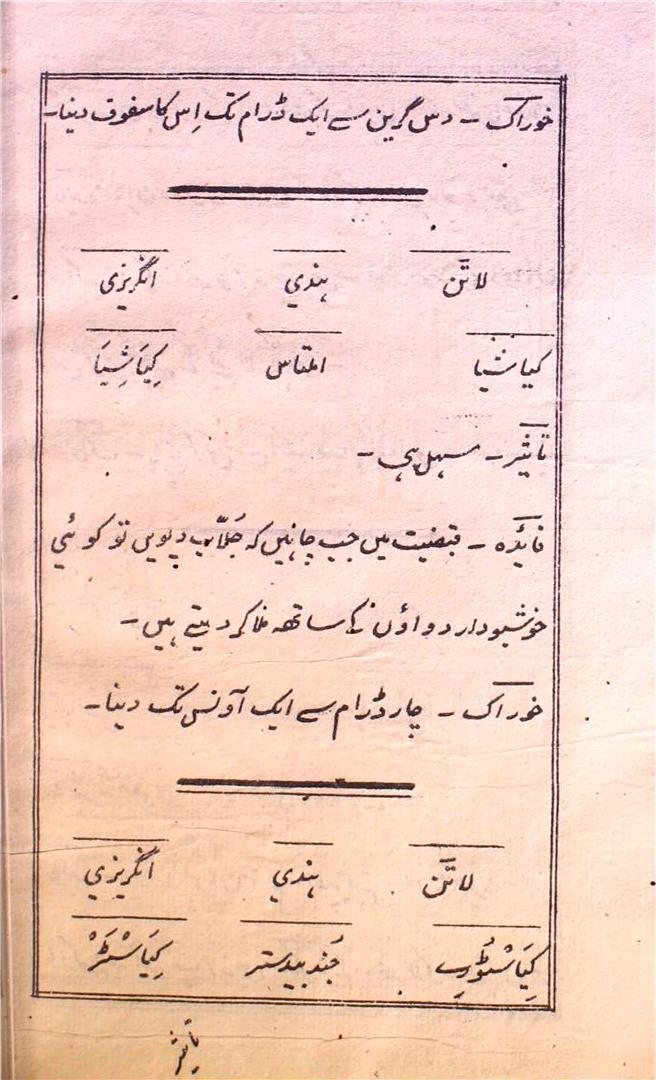 خوراک - دس گرین سے ایک ڈرام تک اِس کا سفوف دینا۔
لاتَن ہندي انگریزي
کیاشیا املتاس کِیَاشِیَا
تاثیر - مسہل ہی -
فائدہ - قبضیت میں جب چاہیں کہ جَلّاب دیویں تو کوئي
خوشبودار دواؤن کے ساتھ ملا کر دیتے ہیں -
خوراک - چار ڈرام سے ایک آونس تک دینا۔
لاتَن ہندي انگریزي
کِیَاسْٹورے جُندبیدستر کِیَاسْٹَرْ
تاثیر